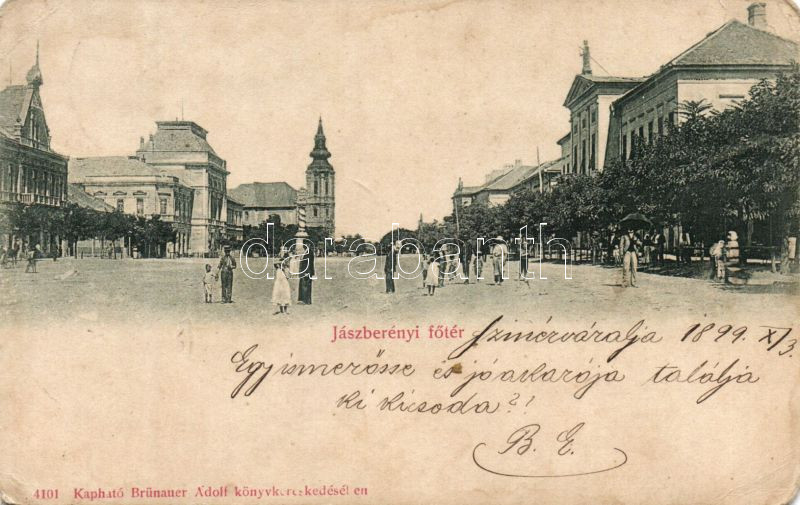 darabanth
Jászberényi főtér
Szinérváralja 1899. X/3.
Egy ismerősse és jóakarója találja
ki kicsoda?!
B. E.
4101 Kapható Brünauer Adolf könyvkereskedésében